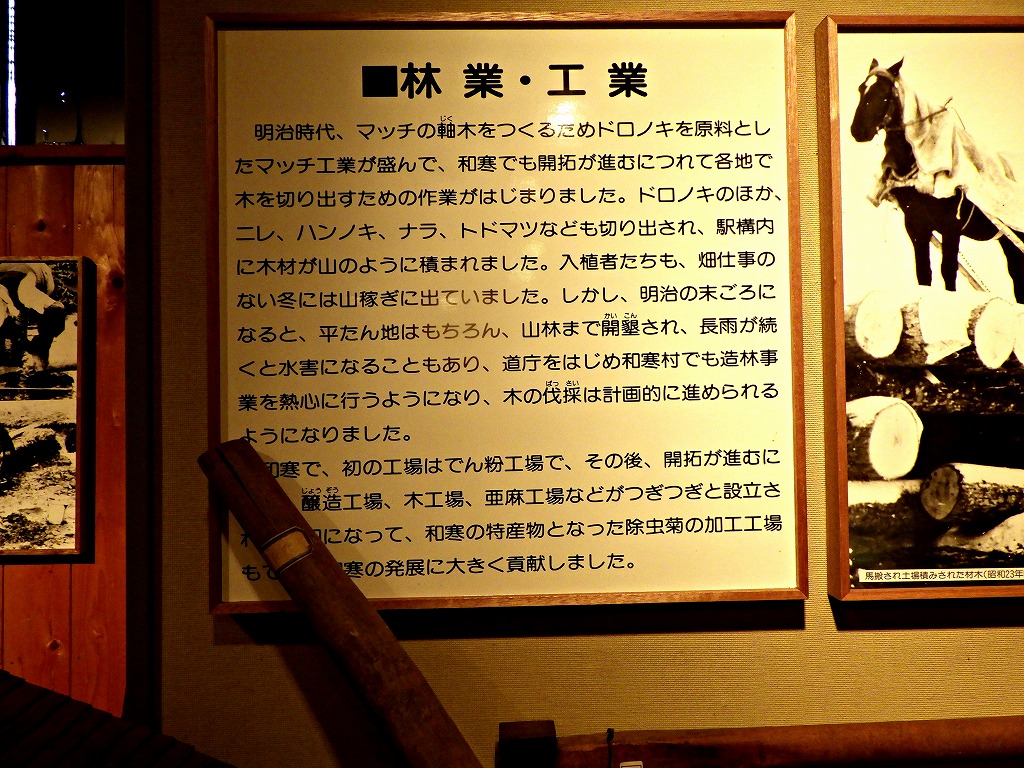 ■林業・工業
明治時代、マッチの軸木をつくるためドロノキを原料とし
たマッチ工業が盛んで、和寒でも開拓が進むにつれて各地で
木を切り出すための作業がはじまりました。ドロノキのほか、
ニレ、ハンノキ、ナラ、トドマツなども切り出され、駅構内
に木材が山のように積まれました。入植者たちも、畑仕事の
ない冬には山稼ぎに出ていました。しかし、明治の末ごろに
なると、平たん地はもちろん、山林まで開墾され、長雨が続
くと水害になることもあり、道庁をはじめ和寒村でも造林事
業を熱心に行うようになり、木の伐採は計画的に進められる
ようになりました。
和寒で、初の工場はでん粉工場で、その後、開拓が進むに
醸造工場、木工場、亜麻工場などがつぎつぎと設立さ
になって、和寒の特産物となった除虫菊の加工工場
もで 寒の発展に大きく貢献しました。
馬搬され土場積みされた材木(昭和23年